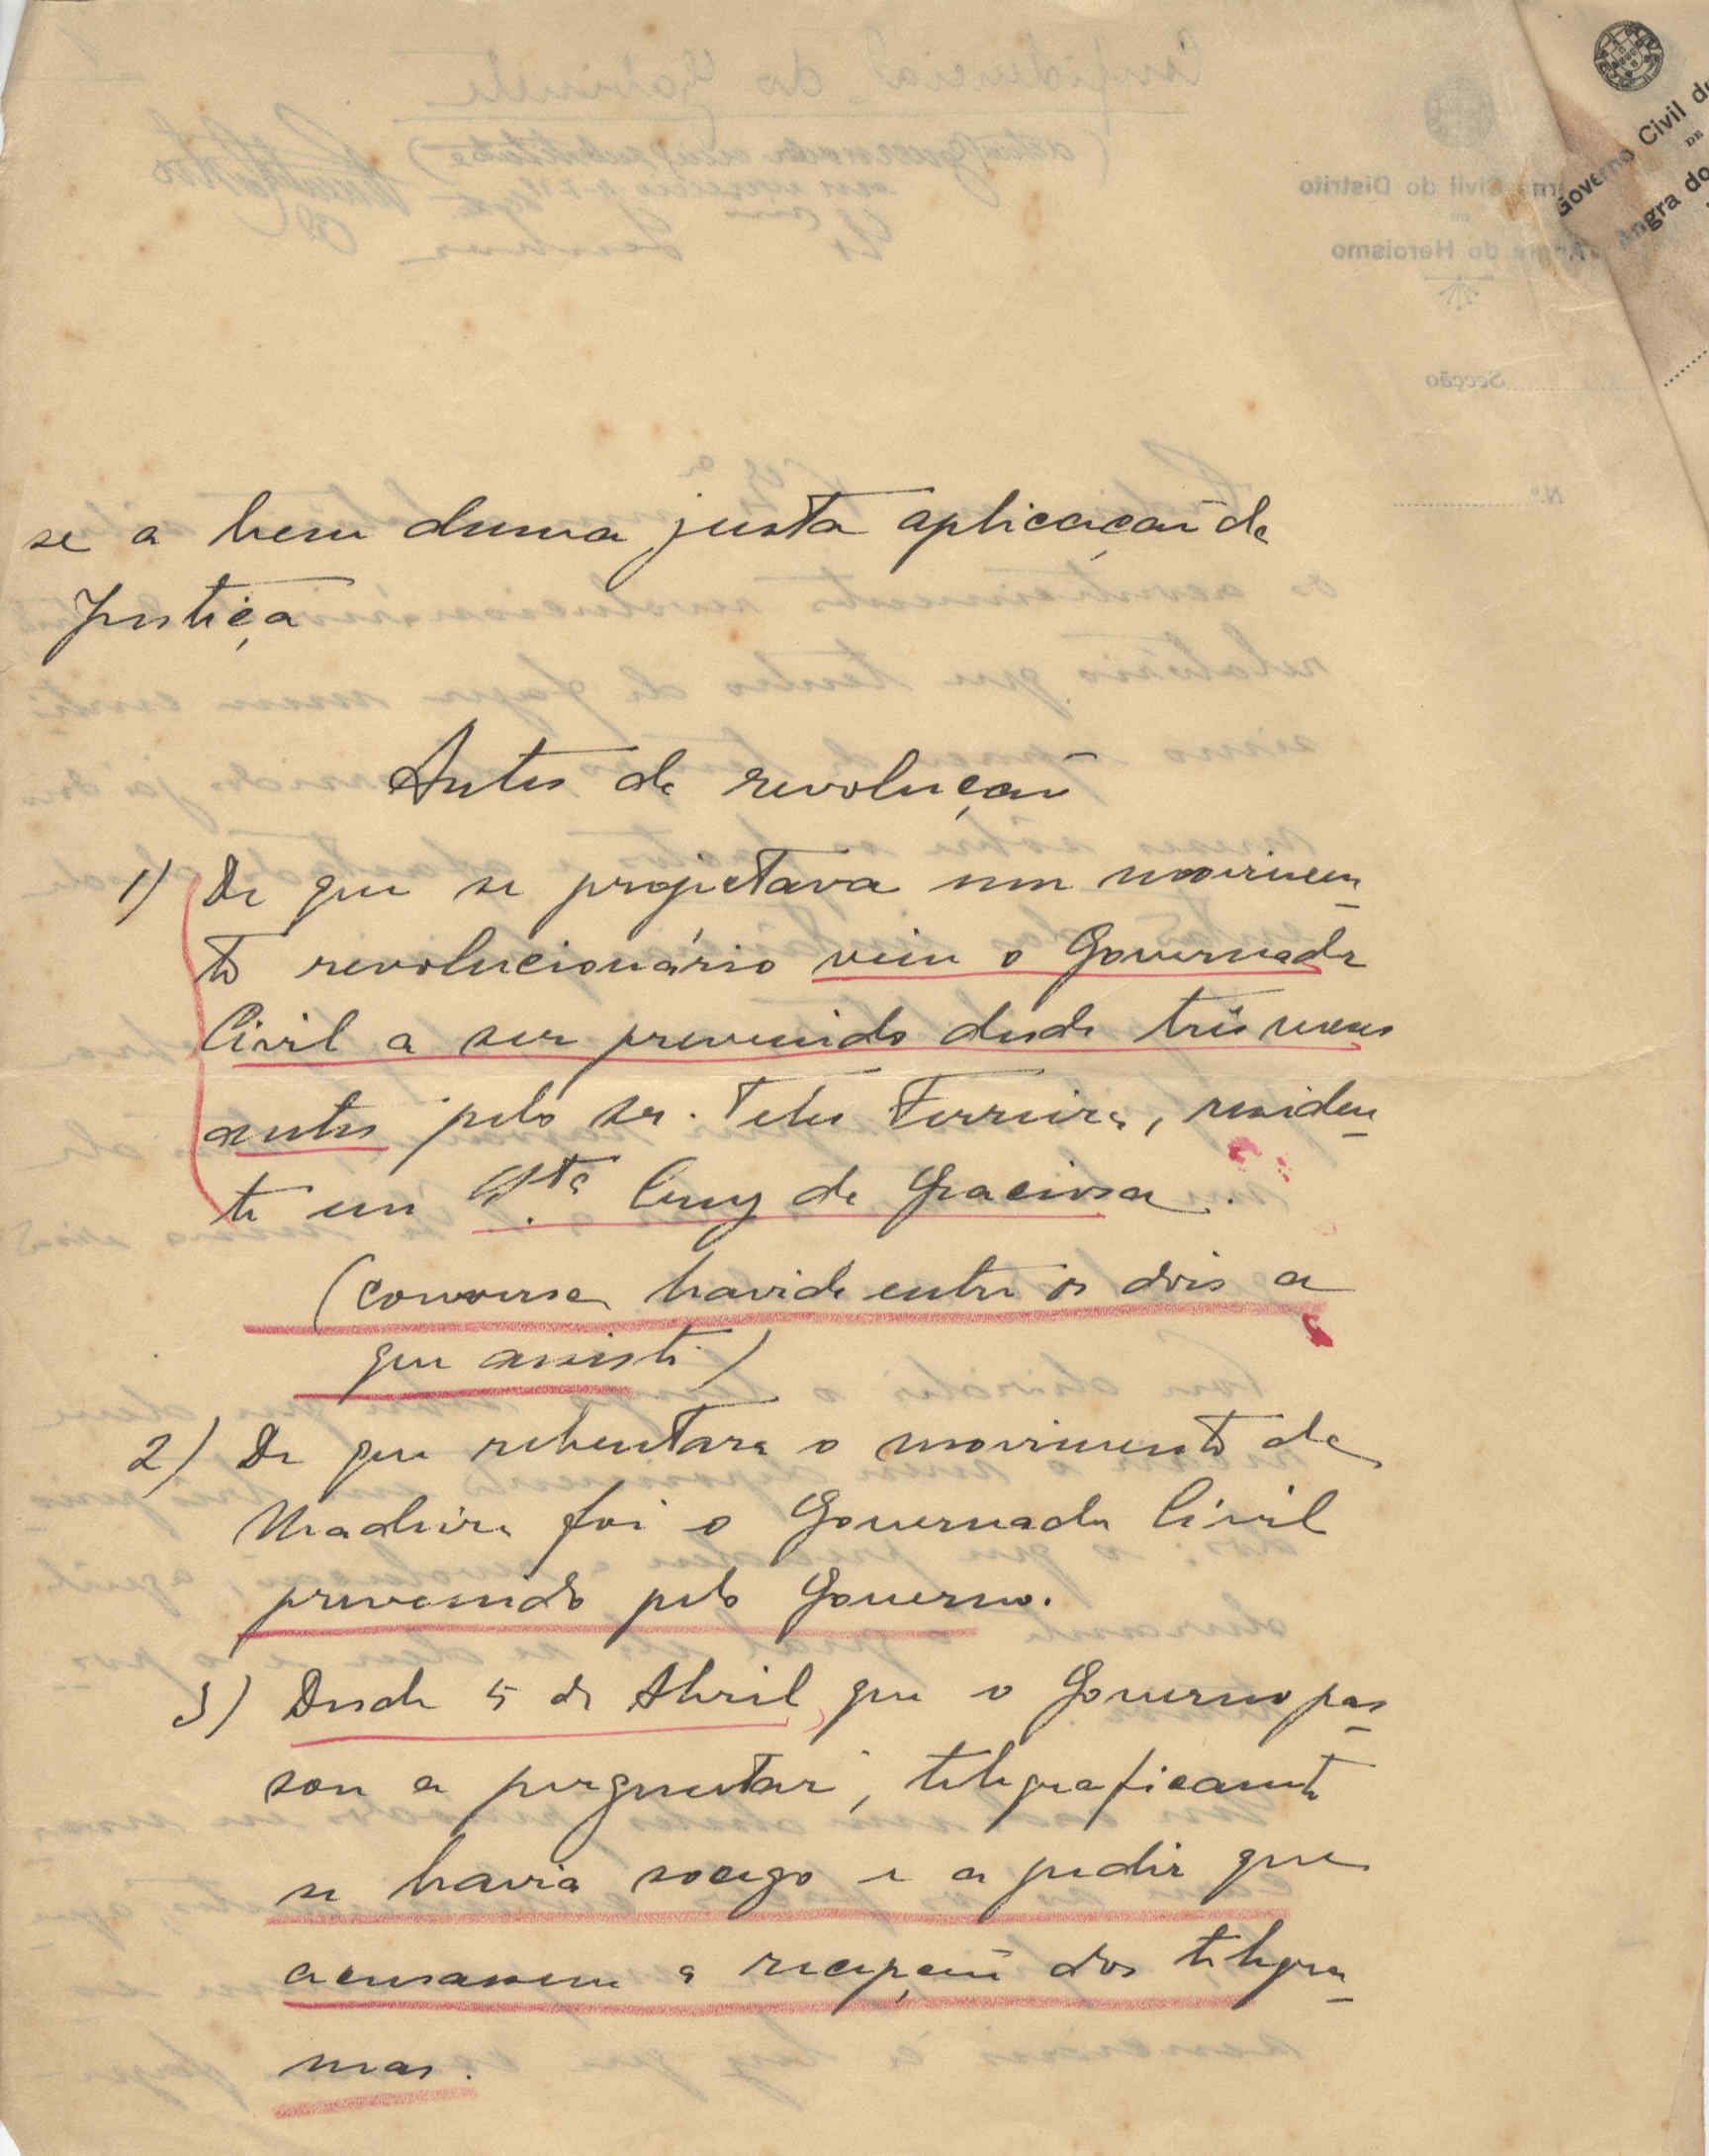 Governo Civil do
DE
Angra do
se a bem duma justa aplicação da
Justiça
Antes da revolução
1) De que se projectava um movimen-
to revolucionário vem o Governador
Civil a ser prevenido desde três meses
antes pelo sr. Teles Ferreira, residen-
te em Sta Cruz da Graciosa.
(conversa havida entre os dois a
que assisti)
2) De que rebentara o movimento da
Madeira foi o Governador Civil
prevenido pelo Governo.
3) Desde 5 de Abril, que o Governo pas-
sou a perguntar, telegraficamente
se havia socego e a pedir que
acusassem a recepção dos telegra-
mas.